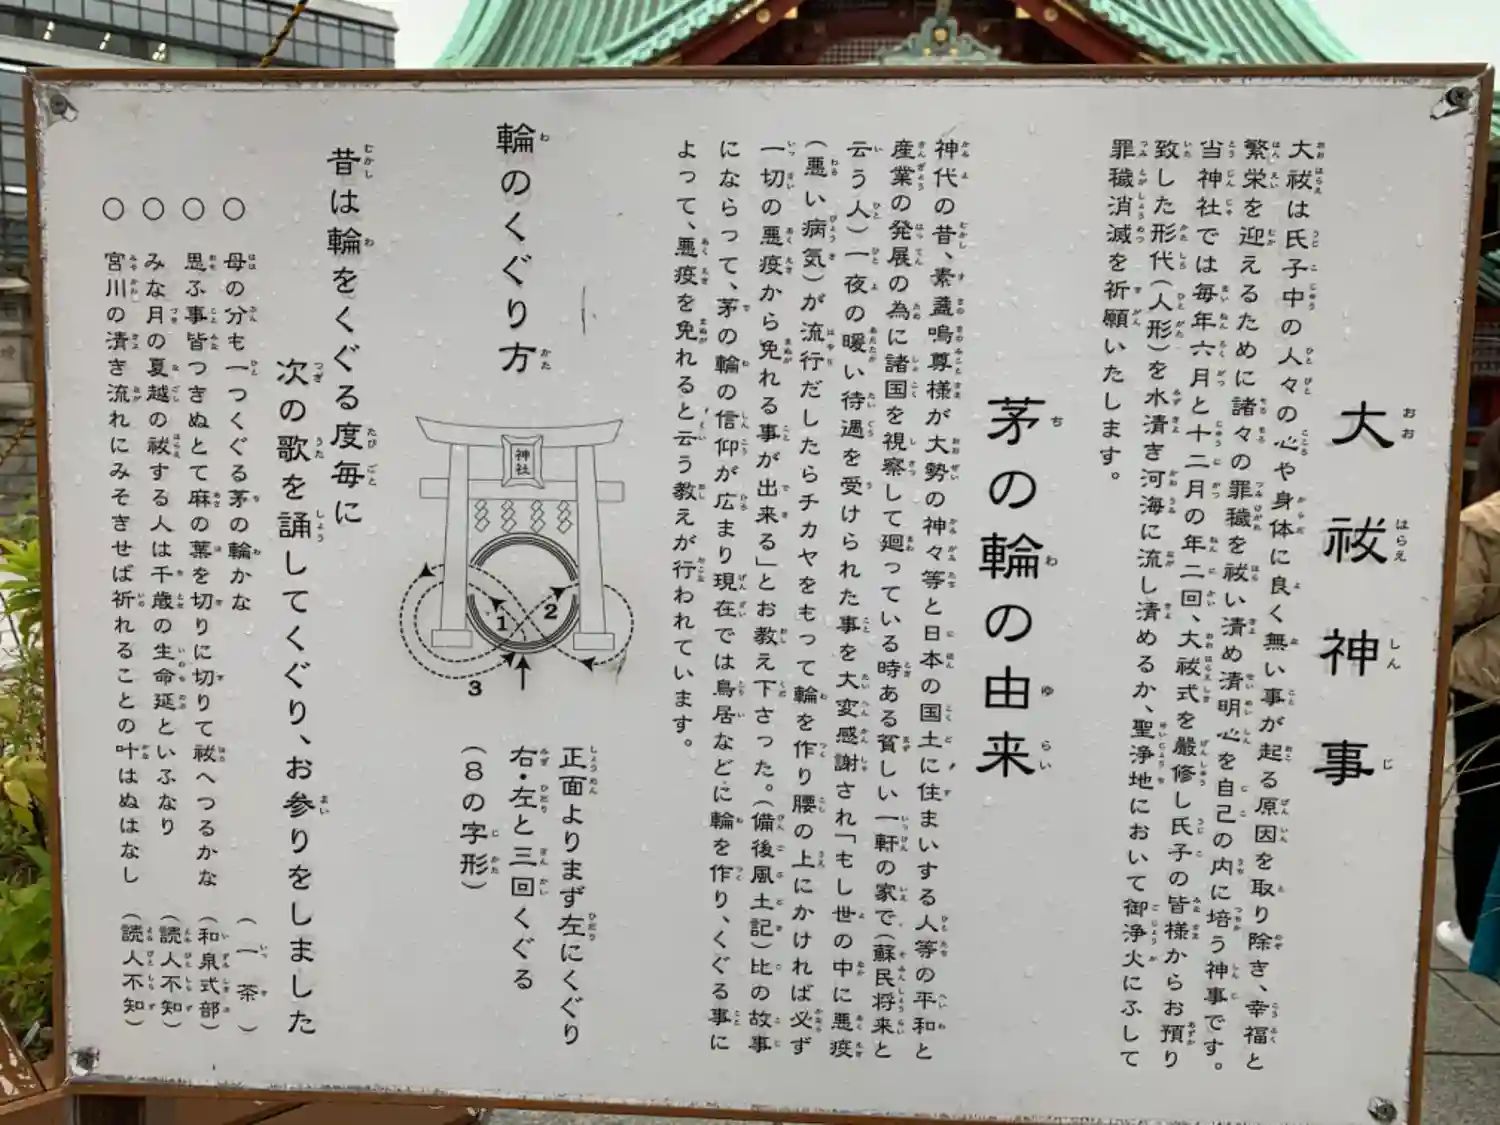 大祓神事
大祓は氏子中の人々の心や身体に良く無い事が起る原因を取り除き、幸福と
繁栄を迎えるために諸々の罪穢を祓い清め清明心を自己の内に培う神事です。
当神社では毎年六月と十二月の年二回、大祓式を厳修し氏子の皆様からお預り
致した形代(人形)を水清き河海に流し清めるか、聖浄地において御浄火にふして
罪穢消滅を祈願いたします。
茅の輪の由来
神代の昔、素盞嗚尊様が大勢の神々等と日本の国土に住まいする人等の平和と
産業の発展の為に諸国を視察して廻っている時ある貧しい一軒の家で(蘇民将来と
云う人)一夜の暖い待遇を受けられた事を大変感謝され「もし世の中に悪疫
(悪い病気)が流行だしたらチカヤをもって輪を作り腰の上にかければ必ず
一切の悪疫から免れる事が出来る」とお教え下さった。(備後風土記)比の故事
にならって、茅の輪の信仰が広まり現在では鳥居などに輪を作り、くぐる事に
よって、悪疫を免れると云う教えが行われています。
輪のくぐり方
神社
1
2
3
正面よりまず左にくぐり
右・左と三回くぐる
(8の字形)
昔は輪をくぐる度毎に
次の歌を誦してくぐり、お参りをしました
○ 母の分も一つくぐる茅の輪かな (一茶)
○ 思ふ事皆つきぬとて麻の葉を切りに切りて祓へつるかな (和泉式部)
○ みな月の夏越の祓する人は千歳の生命延といふなり (読人不知)
○ 宮川の清き流れにみそきせば祈れることの叶はぬはなし (読人不知)